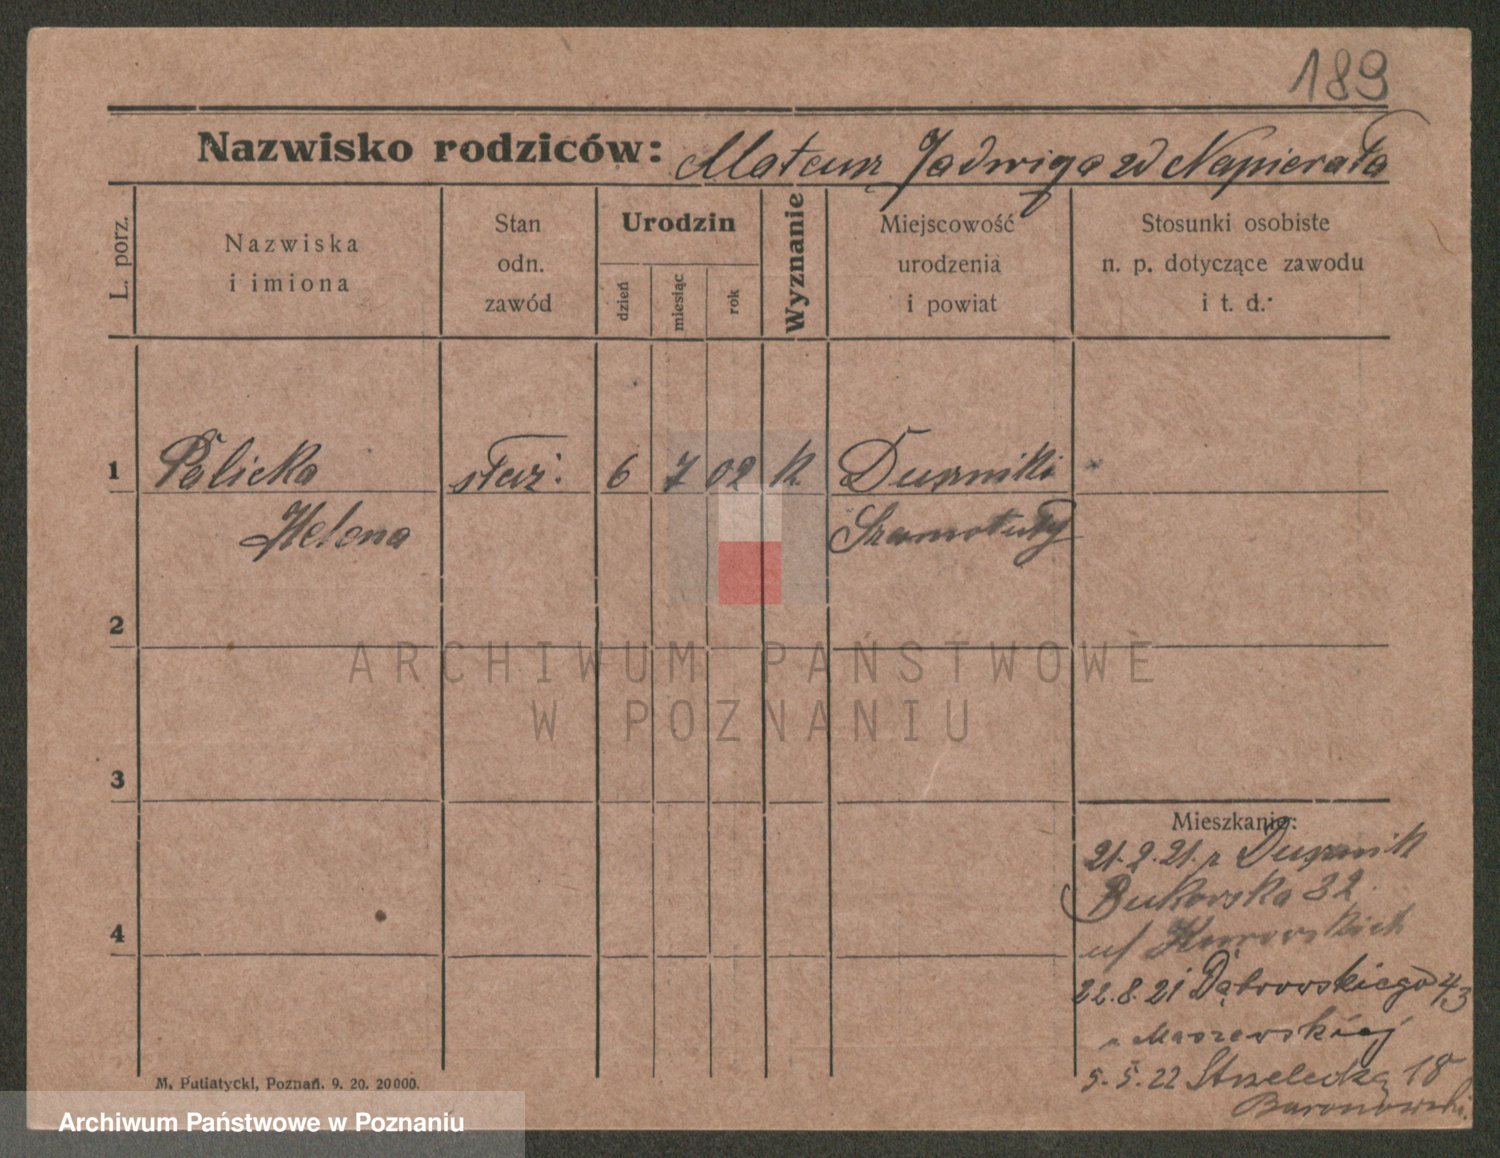 189
Nazwisko rodziców: Mateusz Jadwiga zd Napierała
L. porz.
Nazwiska
i imiona
Stan
odn.
zawód
Urodzin
dzień
miesiąc
rok
Wyznanie
Miejscowość
urodzenia
i powiat
Stosunki osobiste
n. p. dotyczące zawodu
i t. d.
1 Palicka służ. 6 7 02 K Duszniki
Helena Szamotuły
2
3
4
Mieszkanie:
21.2.21. z Dusznik
Bukowska 32.
u/
22.8.21 Dąbrowskiego 43
u Maszewskiej
5.5.22 Strzelecka 18
Baranowski
M. Putiatycki, Poznań. 9. 20. 20000.
ARCHIWUM PAŃSTWOWE
W POZNANIU
Archiwum Państwowe w Poznaniu